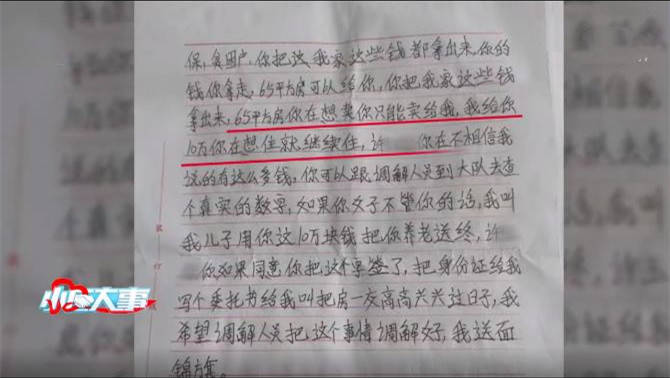 保，贪困户，你把这我家这些钱都拿出来，你的
钱你拿走，65平方房可以给你，你把我家这些钱
拿出来，65平方房你在想卖你只能卖给我，我给你
10万你在想住就继续住，许 你在不相信我
说的有这么多钱，你可以跟调解人员到大队去查
个真实的数字，如果你女子不管你的话，我叫
我儿子用你这10万块钱把你养老送终，许
你如果同意你把这个字签了，把身份证给我
写个委托书给我叫把房一交高高兴兴过日子，我
希望调解人员把这个事情调解好，我送面
锦旗。
小区大事